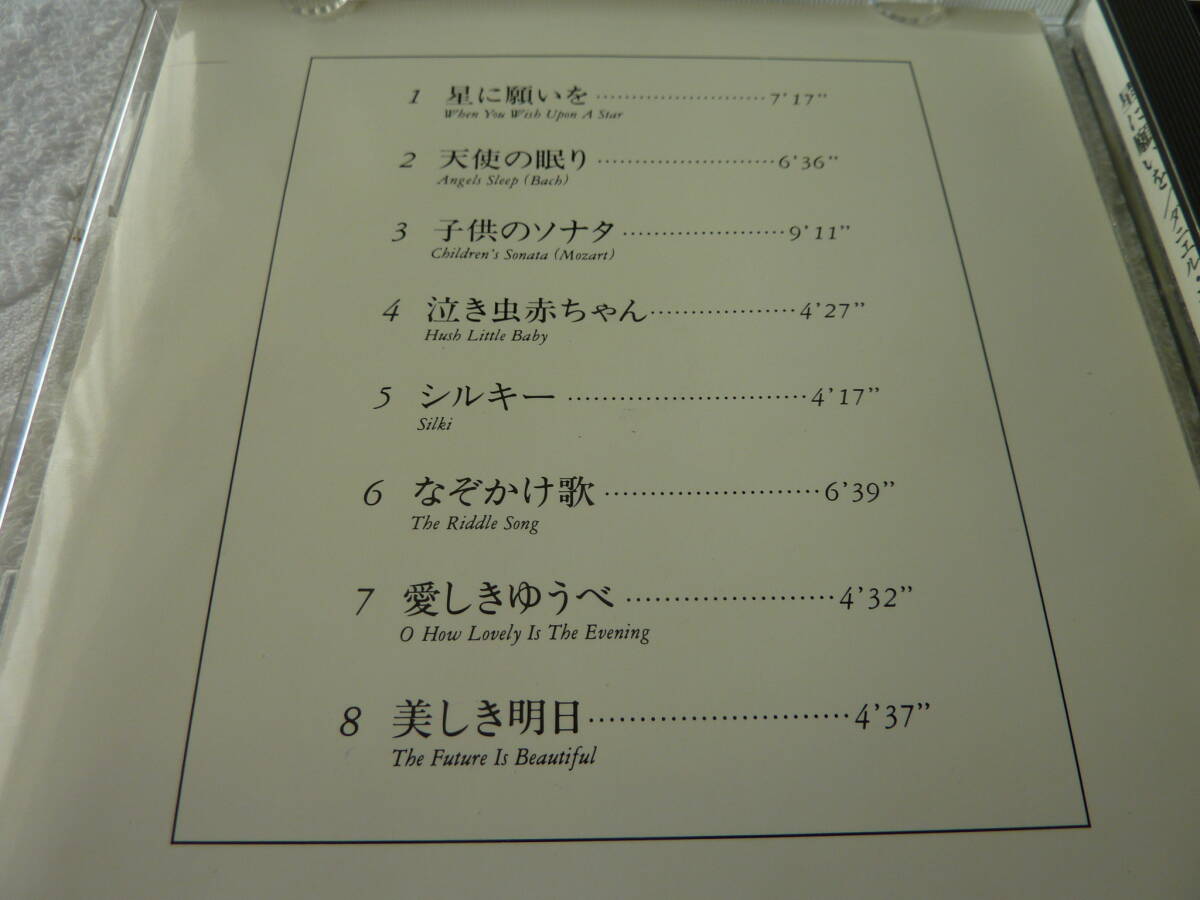 1 星に願いを ························ 7'17"
When You Wish Upon A Star
2 天使の眠り ························ 6'36"
Angels Sleep (Bach)
3 子供のソナタ ······················ 9'11"
Children's Sonata (Mozart)
4 泣き虫赤ちゃん ·················· 4'27"
Hush Little Baby
5 シルキー ··························· 4'17"
Silki
6 なぞかけ歌 ························ 6'39"
The Riddle Song
7 愛しきゆうべ ······················ 4'32"
O How Lovely Is The Evening
8 美しき明日 ························ 4'37"
The Future Is Beautiful
星に願いを/ダニエル